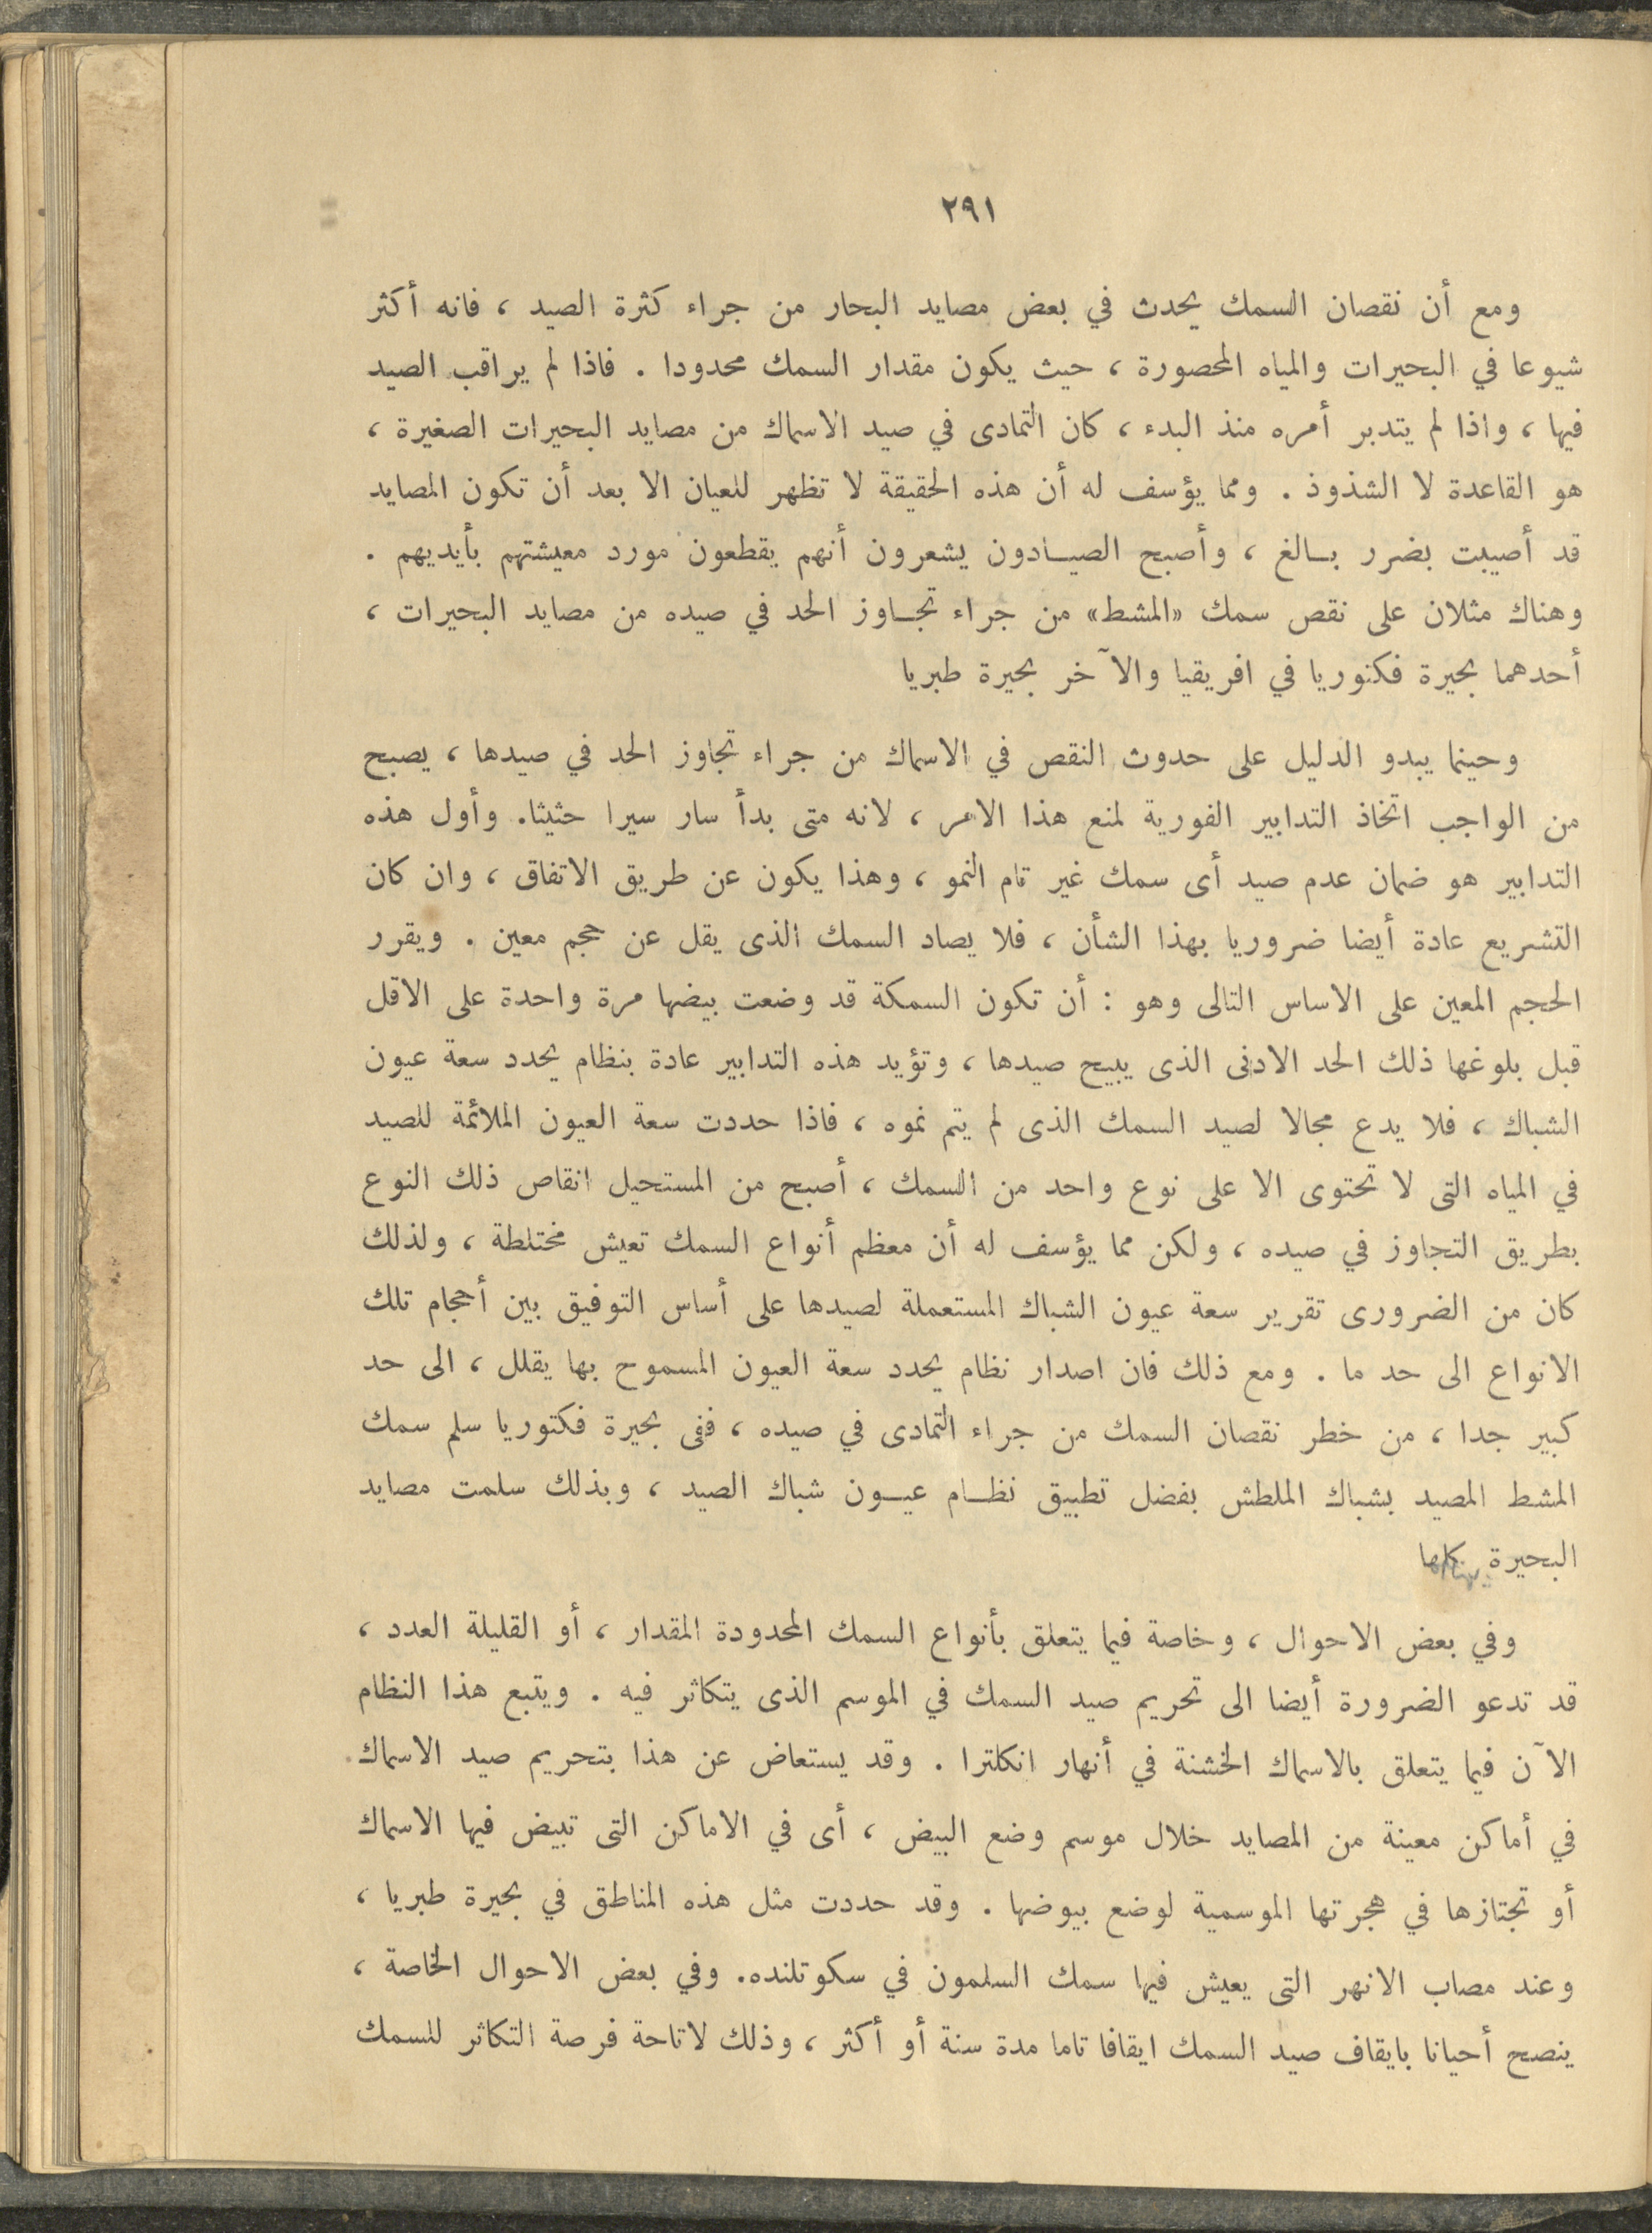 ٢٩١
ومع أن نقصان السمك يحدث في بعض مصايد البحار من جراء كثرة الصيد ، فانه أكثر
شيوعا في البحيرات والمياه المحصورة ، حيث يكون مقدار السمك محدودا . فاذا لم يراقب الصيد
فيها ، واذا لم يتدبر أمره منذ البدء ، كان التمادى في صيد الاسماك من مصايد البحيرات الصغيرة ،
هو القاعدة لا الشذوذ . ومما يؤسف له أن هذه الحقيقة لا تظهر للعيان الا بعد أن تكون المصايد
قد أصيبت بضرر بالغ ، وأصبح الصيادون يشعرون أنهم يقطعون مورد معيشتهم بأيديهم .
وهناك مثلان على نقص سمك «المشط» من جراء تجاوز الحد في صيده من مصايد البحيرات ،
أحدهما بحيرة فكتوريا في افريقيا والآخر بحيرة طبريا
وحينما يبدو الدليل على حدوث النقص في الاسماك من جراء تجاوز الحد في صيدها ، يصبح
من الواجب اتخاذ التدابير الفورية لمنع هذا الامر ، لانه متى بدأ سار سيرا حثيثا. وأول هذه
التدابير هو ضمان عدم صيد أى سمك غير تام النمو ، وهذا يكون عن طريق الاتفاق ، وان كان
التشريع عادة أيضا ضروريا بهذا الشأن ، فلا يصاد السمك الذى يقل عن حجم معين . ويقرر
الحجم المعين على الاساس التالى وهو : أن تكون السمكة قد وضعت بيضها مرة واحدة على الاقل
قبل بلوغها ذلك الحد الادنى الذى يبيح صيدها ، وتؤيد هذه التدابير عادة بنظام يحدد سعة عيون
الشباك ، فلا يدع مجالا لصيد السمك الذى لم يتم نموه ، فاذا حددت سعة العيون الملائمة للصيد
في المياه التى لا تحتوى الا على نوع واحد من السمك ، أصبح من المستحيل انقاص ذلك النوع
بطريق التجاوز في صيده ، ولكن مما يؤسف له أن معظم أنواع السمك تعيش مختلطة ، ولذلك
كان من الضرورى تقرير سعة عيون الشباك المستعملة لصيدها على أساس التوفيق بين أحجام تلك
الانواع الى حد ما . ومع ذلك فان اصدار نظام يحدد سعة العيون المسموح بها يقلل ، الى حد
كبير جدا ، من خطر نقصان السمك من جراء التمادى في صيده ، ففى بحيرة فكتوريا سلم سمك
المشط المصيد بشباك الملطش بفضل تطبيق نظام عيون شباك الصيد ، وبذلك سلمت مصايد
البحيرة
وفي بعض الاحوال ، وخاصة فيما يتعلق بأنواع السمك المحدودة المقدار ، أو القليلة العدد ،
قد تدعو الضرورة أيضا الى تحريم صيد السمك في الموسم الذى يتكاثر فيه . ويتبع هذا النظام
الآن فيما يتعلق بالاسماك الخشنة في أنهار انكلترا . وقد يستعاض عن هذا بتحريم صيد الاسماك
في أماكن معينة من المصايد خلال موسم وضع البيض ، أى في الاماكن التى تبيض فيها الاسماك
أو تجتازها في هجرتها الموسمية لوضع بيوضها . وقد حددت مثل هذه المناطق في بحيرة طبريا ،
وعند مصاب الانهر التى يعيش فيها سمك السلمون في سكوتلنده. وفي بعض الاحوال الخاصة ،
ينصح أحيانا بايقاف صيد السمك ايقافا تاما مدة سنة أو أكثر ، وذلك لاتاحة فرصة التكاثر للسمك